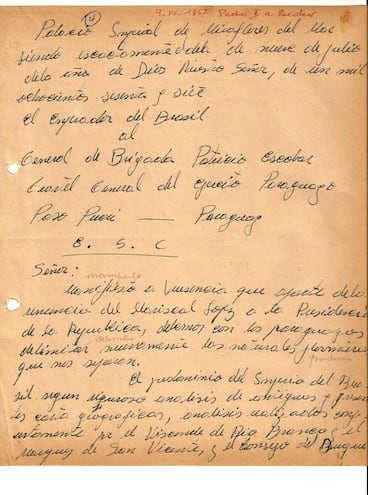 9-VII-1867. Pedro II a Escobar
Palacio Imperial de Miraflores del Mar
siendo exactamente del de nueve de julio
del año de Dios Nuestro Señor, de un mil
ochocientos sesenta y siete
El Emperador del Brasil
al
General de Brigada Patricio Escobar
Cuartel General del Ejército Paraguayo
Paso Pucú — Paraguay
E. S. C
Señor:
Manifiesto a Vuesencia que aparte de la
renuncia del Mariscal López a la Presidencia
de la República, debemos con los paraguayos
delimitar nuevamente las naturales
que nos separan.
El predominio del Imperio del Bra-
sil, según riguroso análisis de
carta geográficas, análisis
por el Vizconde de Río Branco y el
Marqués de San Vicente, y el Consejo del Duque